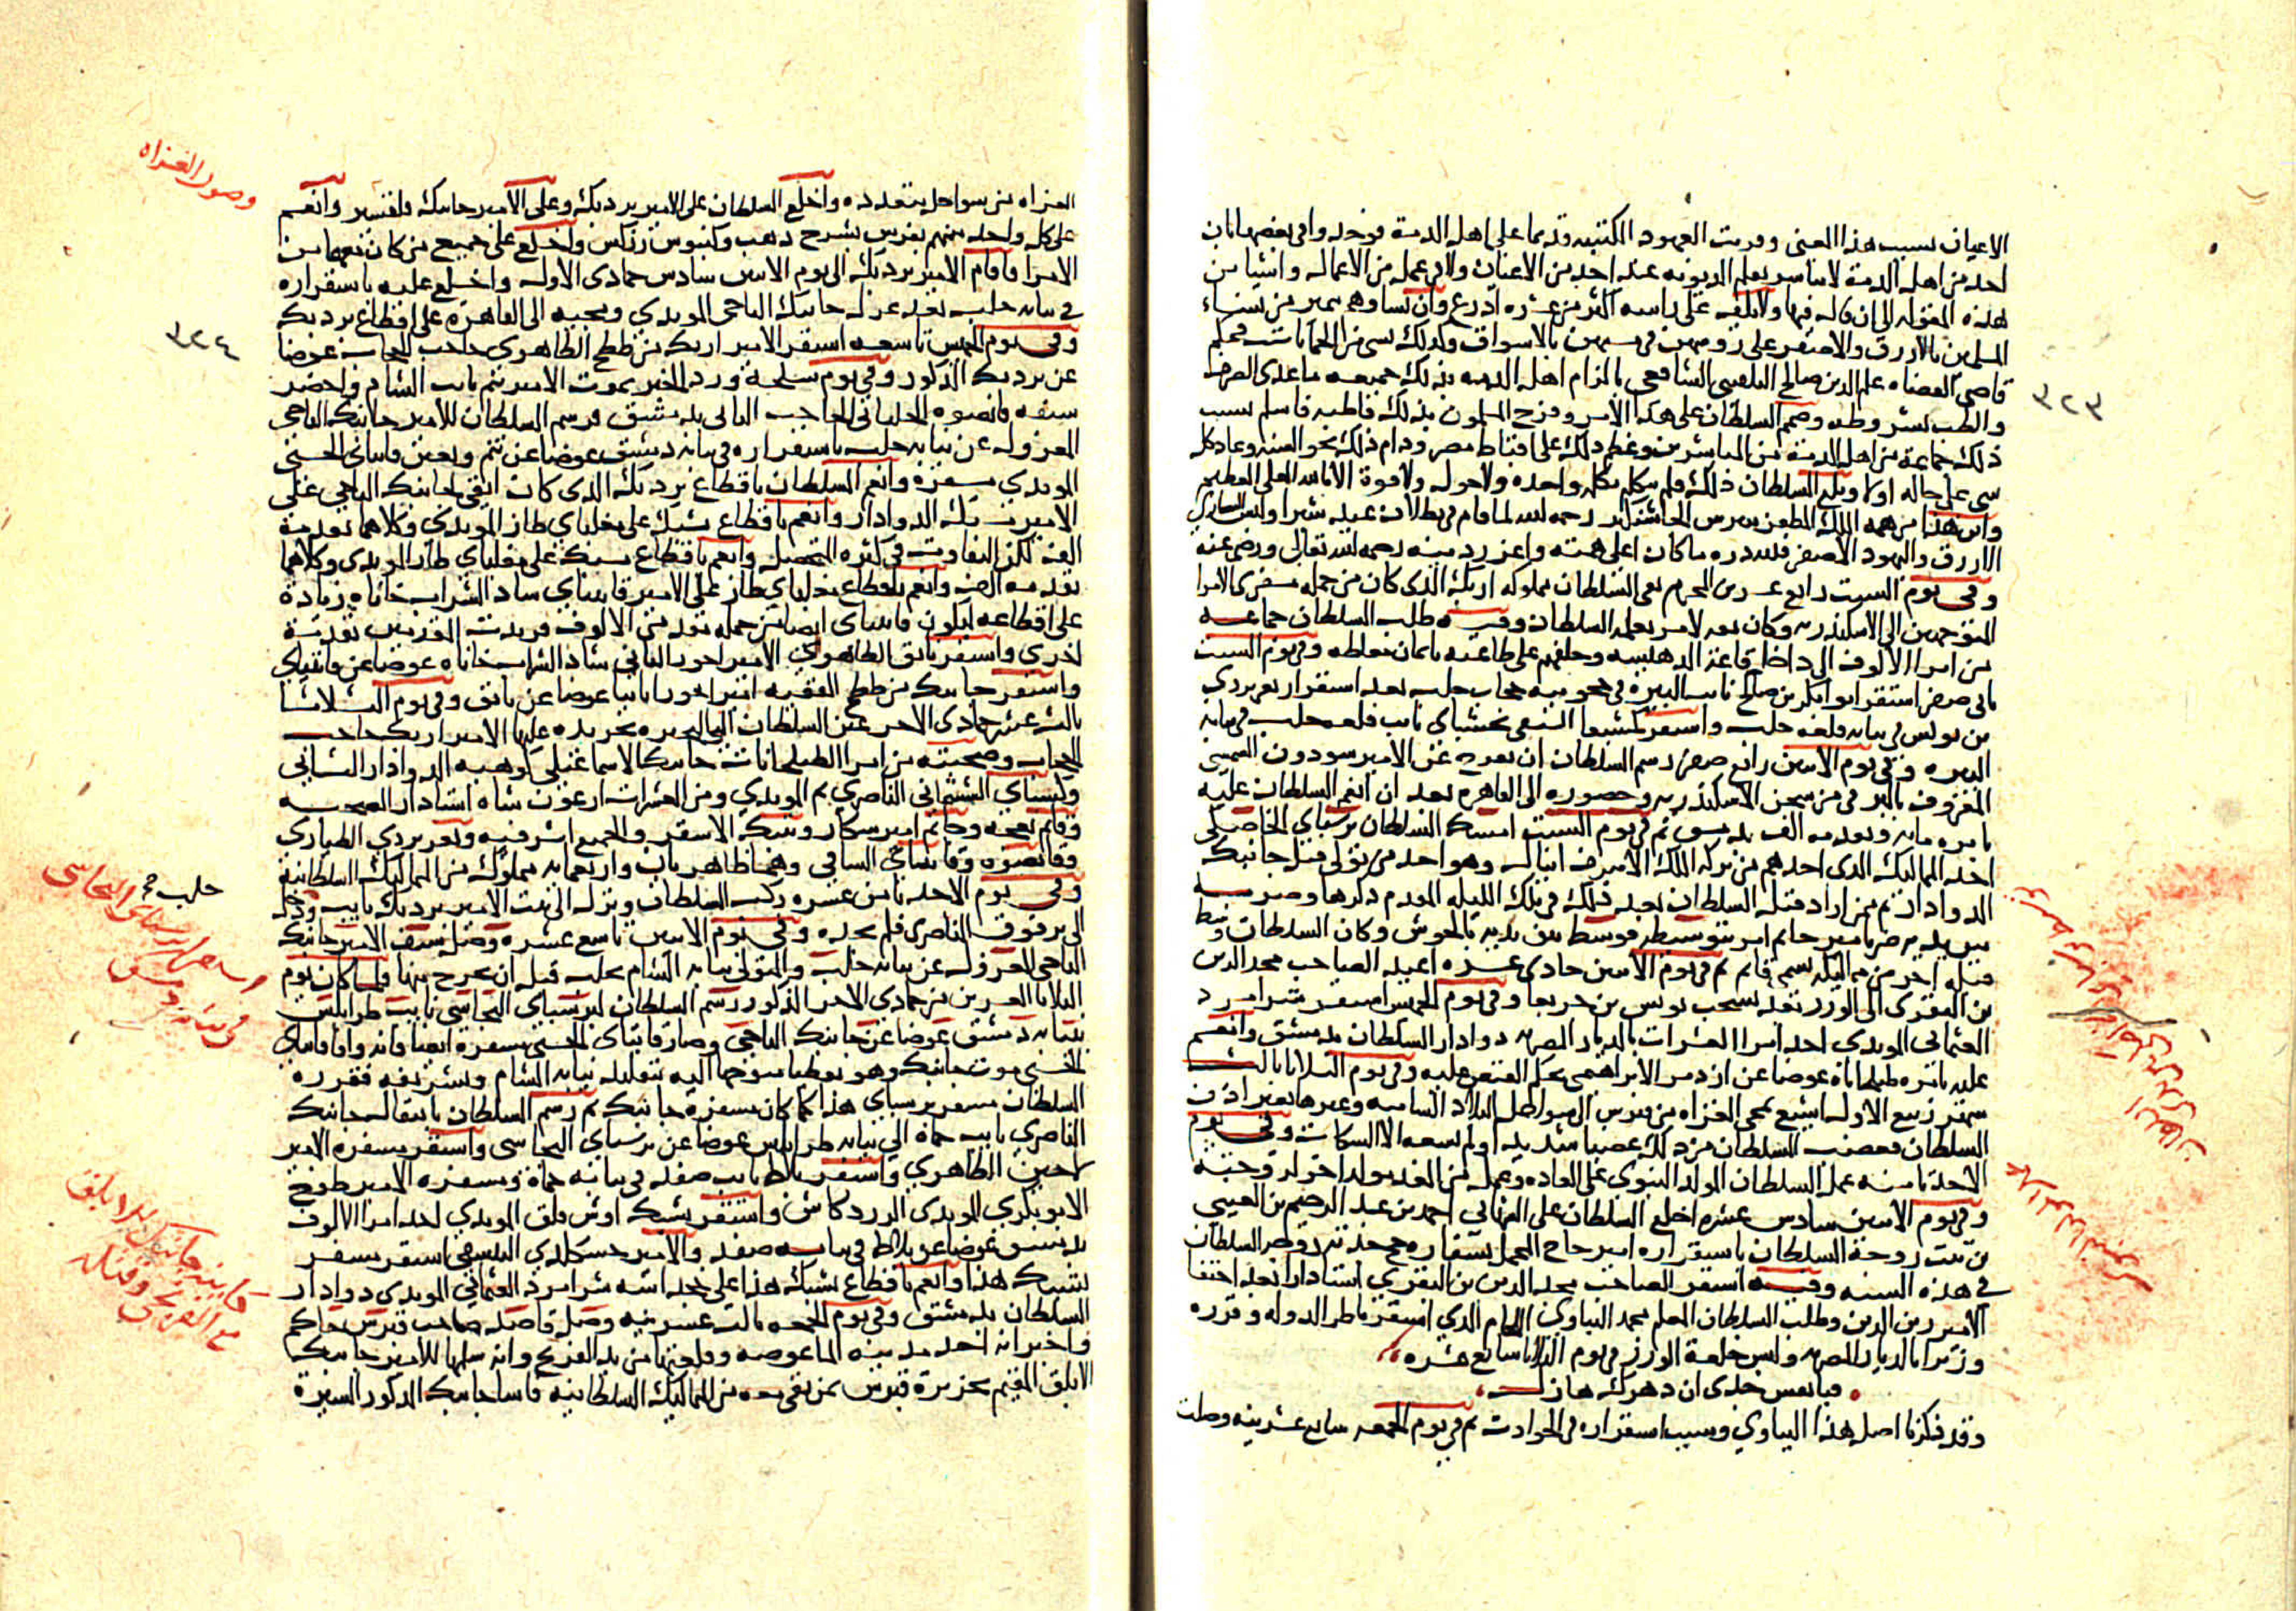 الاعيان بسبب هذا المعنى وقريت العهود المكتتبه قديما على اهل الدمة فوجدوا في بعضها بان
احد من اهل الدمة لا يباشر بقلم الديونه عند احد من الاعيان ولا في عمل من الاعمال واشيا من
هذه المقوله الى ان قال فيها ولا يلف على راسه اكثر من عشره ادرع وان نساوهم يميز من نساء
المسلمين بالازرق والاصفر على روسهن في بالاسواق وكذلك بسى من الحمامات فحكم
قاضي القضاه علم الدين صالح البلقيني الشافعي بالزام اهل الدمه بذلك جميعه ماعدى الصرف
والطب بشروطه وصمم السلطان على هذا الامر وفرح المسلمون بذلك قاطبه فاسلم بسبب
ذلك جماعة من اهل الدمة من المباشرين وعظم ذلك على اقباط مصر ودام ذلك نحو السنه وعاد كل
شى على حاله اولا وبلغ السلطان ذلك فلم يتكلم بكلمه واحده ولا حول ولا قوة الا بالله العلي العظيم
واين هذا من همه الملك المظفر بيبرس الجاشنكير رحمه الله لما قام في بطلان عيد شبرا والبس النصارى
الازرق واليهود الاصفر فلله دره ما كان اعلى همته واعزر دينه رحمه الله تعالى ورضي عنه
وفي يوم السبت رابع عشرين المحرم نفى السلطان مملوكه ازبك الذى كان من جمله مسفرى الامرا
المتوجهين الى الاسكندريه وكان نفيه لامر يعلمه السلطان وفيه طلب السلطان جماعه
من امرا الالوف الى داخل قاعة الدهيشه وحلفهم على طاعته بايمان مغلظه وفي يوم السبت
ثانى صفر استقر ابو بكر بن صالح نايب البيره في حجوبيه حجاب حلب بعد استقرار تغري بردي
بن يونس في نيابه قلعه حلب واستقر كمشبغا السيفي نخشباي نايب قلعه حلب في نيابه
البيره وفي يوم الاثنين رابع صفر رسم السلطان ان يفرج عن الامير سودون القصيمى
المعزوف بالبرقى من سجن الاسكندريه وحضوره الى القاهره بعد ان انعم السلطان عليه
بامره مايه وتقدمه الف بدمشق ثم في يوم السبت امسك السلطان برسباي الخاصكي
احد المماليك الذى احدهم من تركه الملك الاشرف اينال وهو احد من تولى قتل جانبك
الدوادار ثم ممن اراد قتل السلطان بعد ذلك في تلك الليله المقدم ذكرها وضربه
بين يديه ضربا مبرحا ثم امر بتوسيطه فوسط من يديه بالحوش وكان السلطان وسط
قبله اخر من مماليكه يسمى قانم ثم في يوم الاثنين حادى عشره اعيد الصاحب مجد الدين
بن البقرى الى الوزر بعد تسحب يونس بن جربغا وفي يوم الخميس استقر شرامرد
العثمانى المويدى احد امرا العشرات بالديار المصريه دوادار السلطان بدمشق وانعم
عليه بامره طبلخاناه عوضا عن ازدمر الابراهيمى بحكم القبض عليه وفي يوم الثلاثا ثالث
شهر ربيع الاول اشيع مجي الغزاه من قبرس الى سواحل البلاد الشاميه وغيرها بغير اذن
السلطان فغضب السلطان من ذلك غضبا شديدا ولم يسعه الا السكات وفي يوم
الاحد ثامنه عمل السلطان المولد النبوى على العاده وعمل من الغد مولد اخر لزوجته
وفي يوم الاثنين سادس عشره اخلع السلطان على الشهابى احمد بن عبد الرحيم بن العيني
بن بنت زوجة السلطان باستقراره امير حاج المحمل
في هذه السنه وفيه استقر الصاحب مجد الدين بن البقري استادارا بعد اختفا
الامير زين الدين وطلب السلطان المعلم محمد البباوي اللحام الذي استقر ناظر الدوله وقرره
وزيرا بالديار المصريه ولبس خلعة الوزر في يوم الثلاثا سابع عشره
فيا نفس جدى ان دهرك هازل
وقد ذكرنا اصل هذا البباوي وسبب استقراره في الحوادث ثم في يوم الجمعه سابع عشرينه وصلت
٣٢٣
الغزاه من سواحل متعدده واخلع السلطان على الامير بردبك وعلى الامير جانبك قلقسيز وانعم
على كل واحد منهم بفرس بسرج دهب وكنبوش زركش واخلع على جميع من كان معهما من
الامرا فاقام الامير بردبك الى يوم الاثنين سادس جمادى الاولى واخلع عليه باستقراره
في نيابه حلب بعد عزل جانبك التاجى المويدي ومجيه الى القاهره على اقطاع بردبك
وفي يوم الخميس تاسعه استقر الامير ازبك من ططخ الظاهرى حاجب الحجاب عوضا
عن بردبك المذكور وفي يوم سلخه ورد الخبر بموت الامير تنم نايب الشام واحضر
سيفه قانصوه الجلبانى الحاجب الثانى بدمشق فرسم السلطان للامير جانبك التاجى
المعزول عن نيابه حلب باستقراره في نيابه دمشق عوضا عن تنم وتعين قايتباى الحسنى
المويدي مسفره وانعم السلطان باقطاع بردبك الذى كان ابقي لجانبك التاجي على
الامير يشبك الدوادار وانعم باقطاع يشبك على مغلباي طاز المويدي وكلاهما تقدمة
الف لكن التفاوت في كثره التحصيل وانعم باقطاع يشبك على مغلباي طاز المويدى وكلاهما
تقدمه الف وانعم باقطاع مغلباي طاز على الامير قايتباي شاد الشراب خاناه زيادة
على اقطاعه ليكون قايتباى ايضا من جمله مقدمى الالوف فزيدت المقدمين تقدمة
اخرى واستقر نانق الظاهرى الامير اخور الثانى شاد الشراب خاناه عوضا عن قايتباي
واستقر جانبك من ططخ الفقيه امير اخورا ثانيا عوضا عن نانق وفي يوم الثلاثا
ثالث عشر جمادى الاخر عين السلطان الى البحيره تجريده عليها الامير ازبك حاجب
الحجاب وصحبته من امرا الطبلخانات جانبك الاسماعيلى كوهيه الدوادار الثانى
وكسباي الششمانى الناصري ثم المويدي ومن العشرات ارغون شاه استادار الصحبه
وقانم نعجه وجانم امير شكار وتنبك الاشقر والجميع اشرفيه وتغري بردي الطيارى
وقانصوه وقايتباي الساقي وهما ظاهريان واربعمايه مملوك من المماليك السلطانية
وفي يوم الاحد ثامن عشره ركب السلطان ونزل الى بيت الامير بردبك نايب
الى برقوق الناصرى فلم يجده وفي يوم الاثنين تاسع عشره وصل سيف الامير جانبك
التاجى المعزول عن نيابه حلب والمتولى نيابه الشام بحلب قبل ان يخرج منها فلما كان يوم
الثلاثا العشرين من جمادى الاخر المذكور رسم السلطان لبرسباي البجاسي نايب طرابلس
بنيابه دمشق عوضا عن جانبك التاجى وصار قايتباى الحسنى مسفره ايضا فانه وافا قايتباي
الحسنى موت جانبك وهو بقطيا متوجها اليه بتقليد نيابه الشام وتشريفه فقرره
السلطان مسفر برسباي هذا كما كان مسفرة جانبك ثم رسم السلطان بانتقال جانبك
الناصري نايب حماة الى نيابه طرابلس عوضا عن برسباى البجاسى واستقر مسفره الامير
لاجين الظاهري واستقر بلاط نايب صفد في نيابه حماة ومسفره الامير طوخ
الابوبكري المويدى الزردكاش واستقر يشبك اوش قلق المويدي احد امرا الالوف
بدمشق عوضا عن بلاط في نيابه صفد والامير جكلدي استقر مسفر
يشبك هذا وانعم باقطاع يشبك هذا على شرامرد العثماني المويدى دوادار
السلطان بدمشق وفي يوم الجمعه ثالث عشرينه وصل قاصد صاحب قبرس جاكم
واخبر انه اخد مدينه الماغوصه وقلعتها من يد الفرنج وانه سلمها للامير جانبك
الابلق المقيم بجزيرة قبرس بمن بقى معه من المماليك السلطانيه فاسا جانبك المذكور السيرة
وصول الغزاه
٣٢٤
حلب
برسباى البجاسى
في نيابه دمشق
كاينه جانبك الابلق
مع الفرنج وقتله